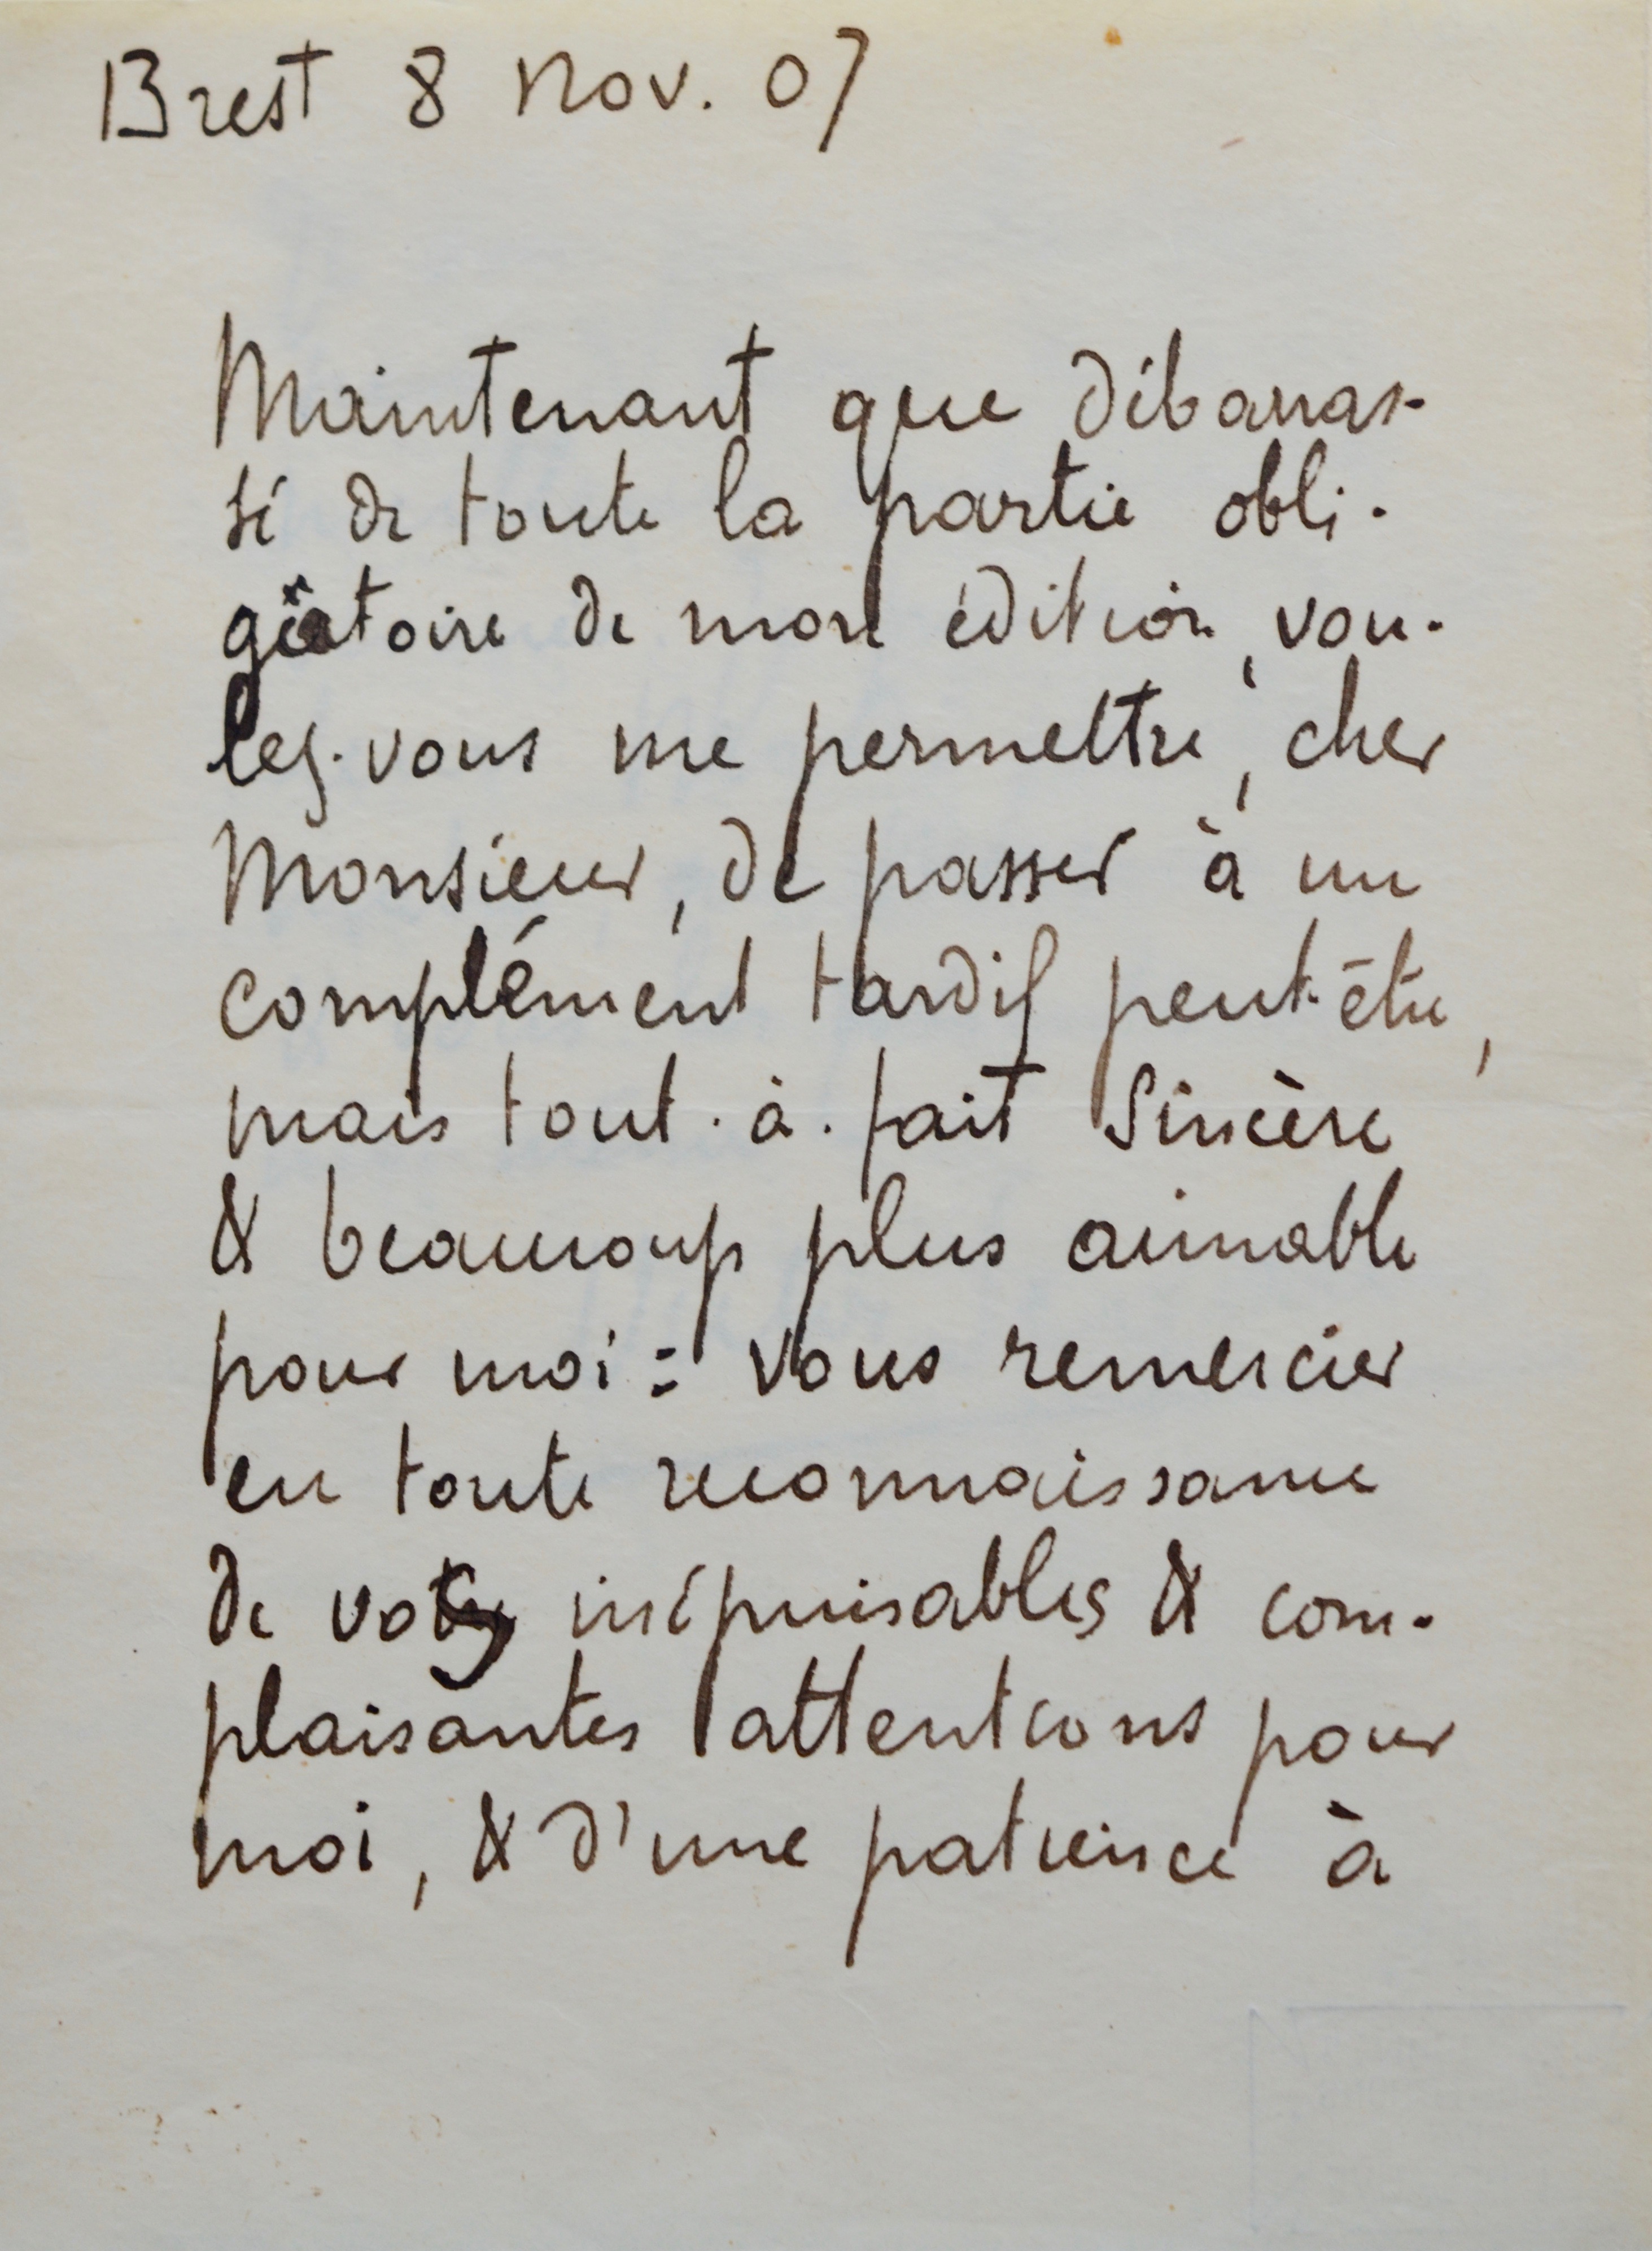 Brest 8 Nov. 07
Maintenant que débarras-
sé de toute la partie obli-
gatoire de mon édition, vou-
lez-vous me permettre, cher
Monsieur, de passer à un
complément tardif peut-être,
mais tout-à-fait sincère
& beaucoup plus aimable
pour moi : vous remercier
en toute reconnaissance
de vos inépuisables & com-
plaisantes attentions pour
moi, & d'une patience à